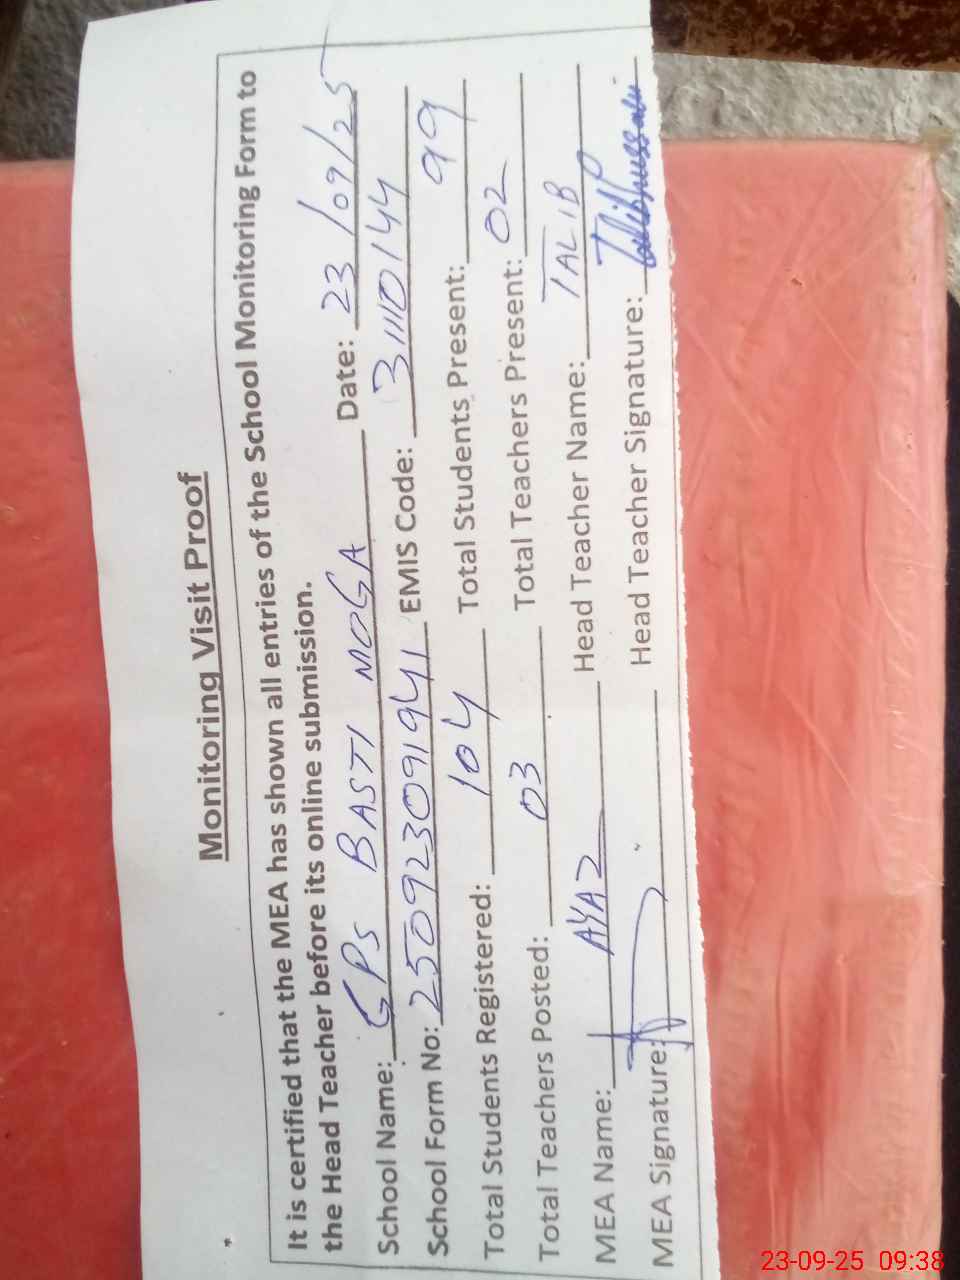 Monitoring Visit Proof
It is certified that the MEA has shown all entries of the School Monitoring Form to
the Head Teacher before its online submission.
School Name: GPS BASTI MOGA Date: 23/09/25
School Form No: 2509230919441 EMIS Code: 31110144
Total Students Registered: 104 Total Students Present: 99
Total Teachers Posted: 03 Total Teachers Present: 02
MEA Name: AYAZ Head Teacher Name: TALIB
MEA Signature: Head Teacher Signature: Talibhussain
23-09-25 09:38